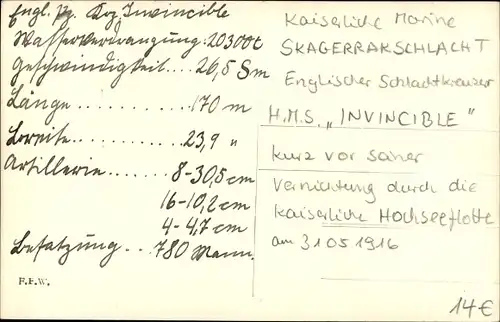 Engl. Pz. Krz. Invincible
Wasserverdrangung: 20300t
Geschwindigkeit.... 26,5 Sm
Länge .......... 170 m
Breite .......... 23,9 "
Artillerie ........ 8-30,5 cm
16-10,2 cm
4-4,7 cm
Besatzung... 780 Mann.
F.E.W.
Kaiserliche Marine
SKAGERRAKSCHLACHT
Englischer Schlachtkreuzer
H.M.S. „INVINCIBLE"
kurz vor seiner
Vernichtung durch die
Kaiserliche Hochseeflotte
am 31051916
14€